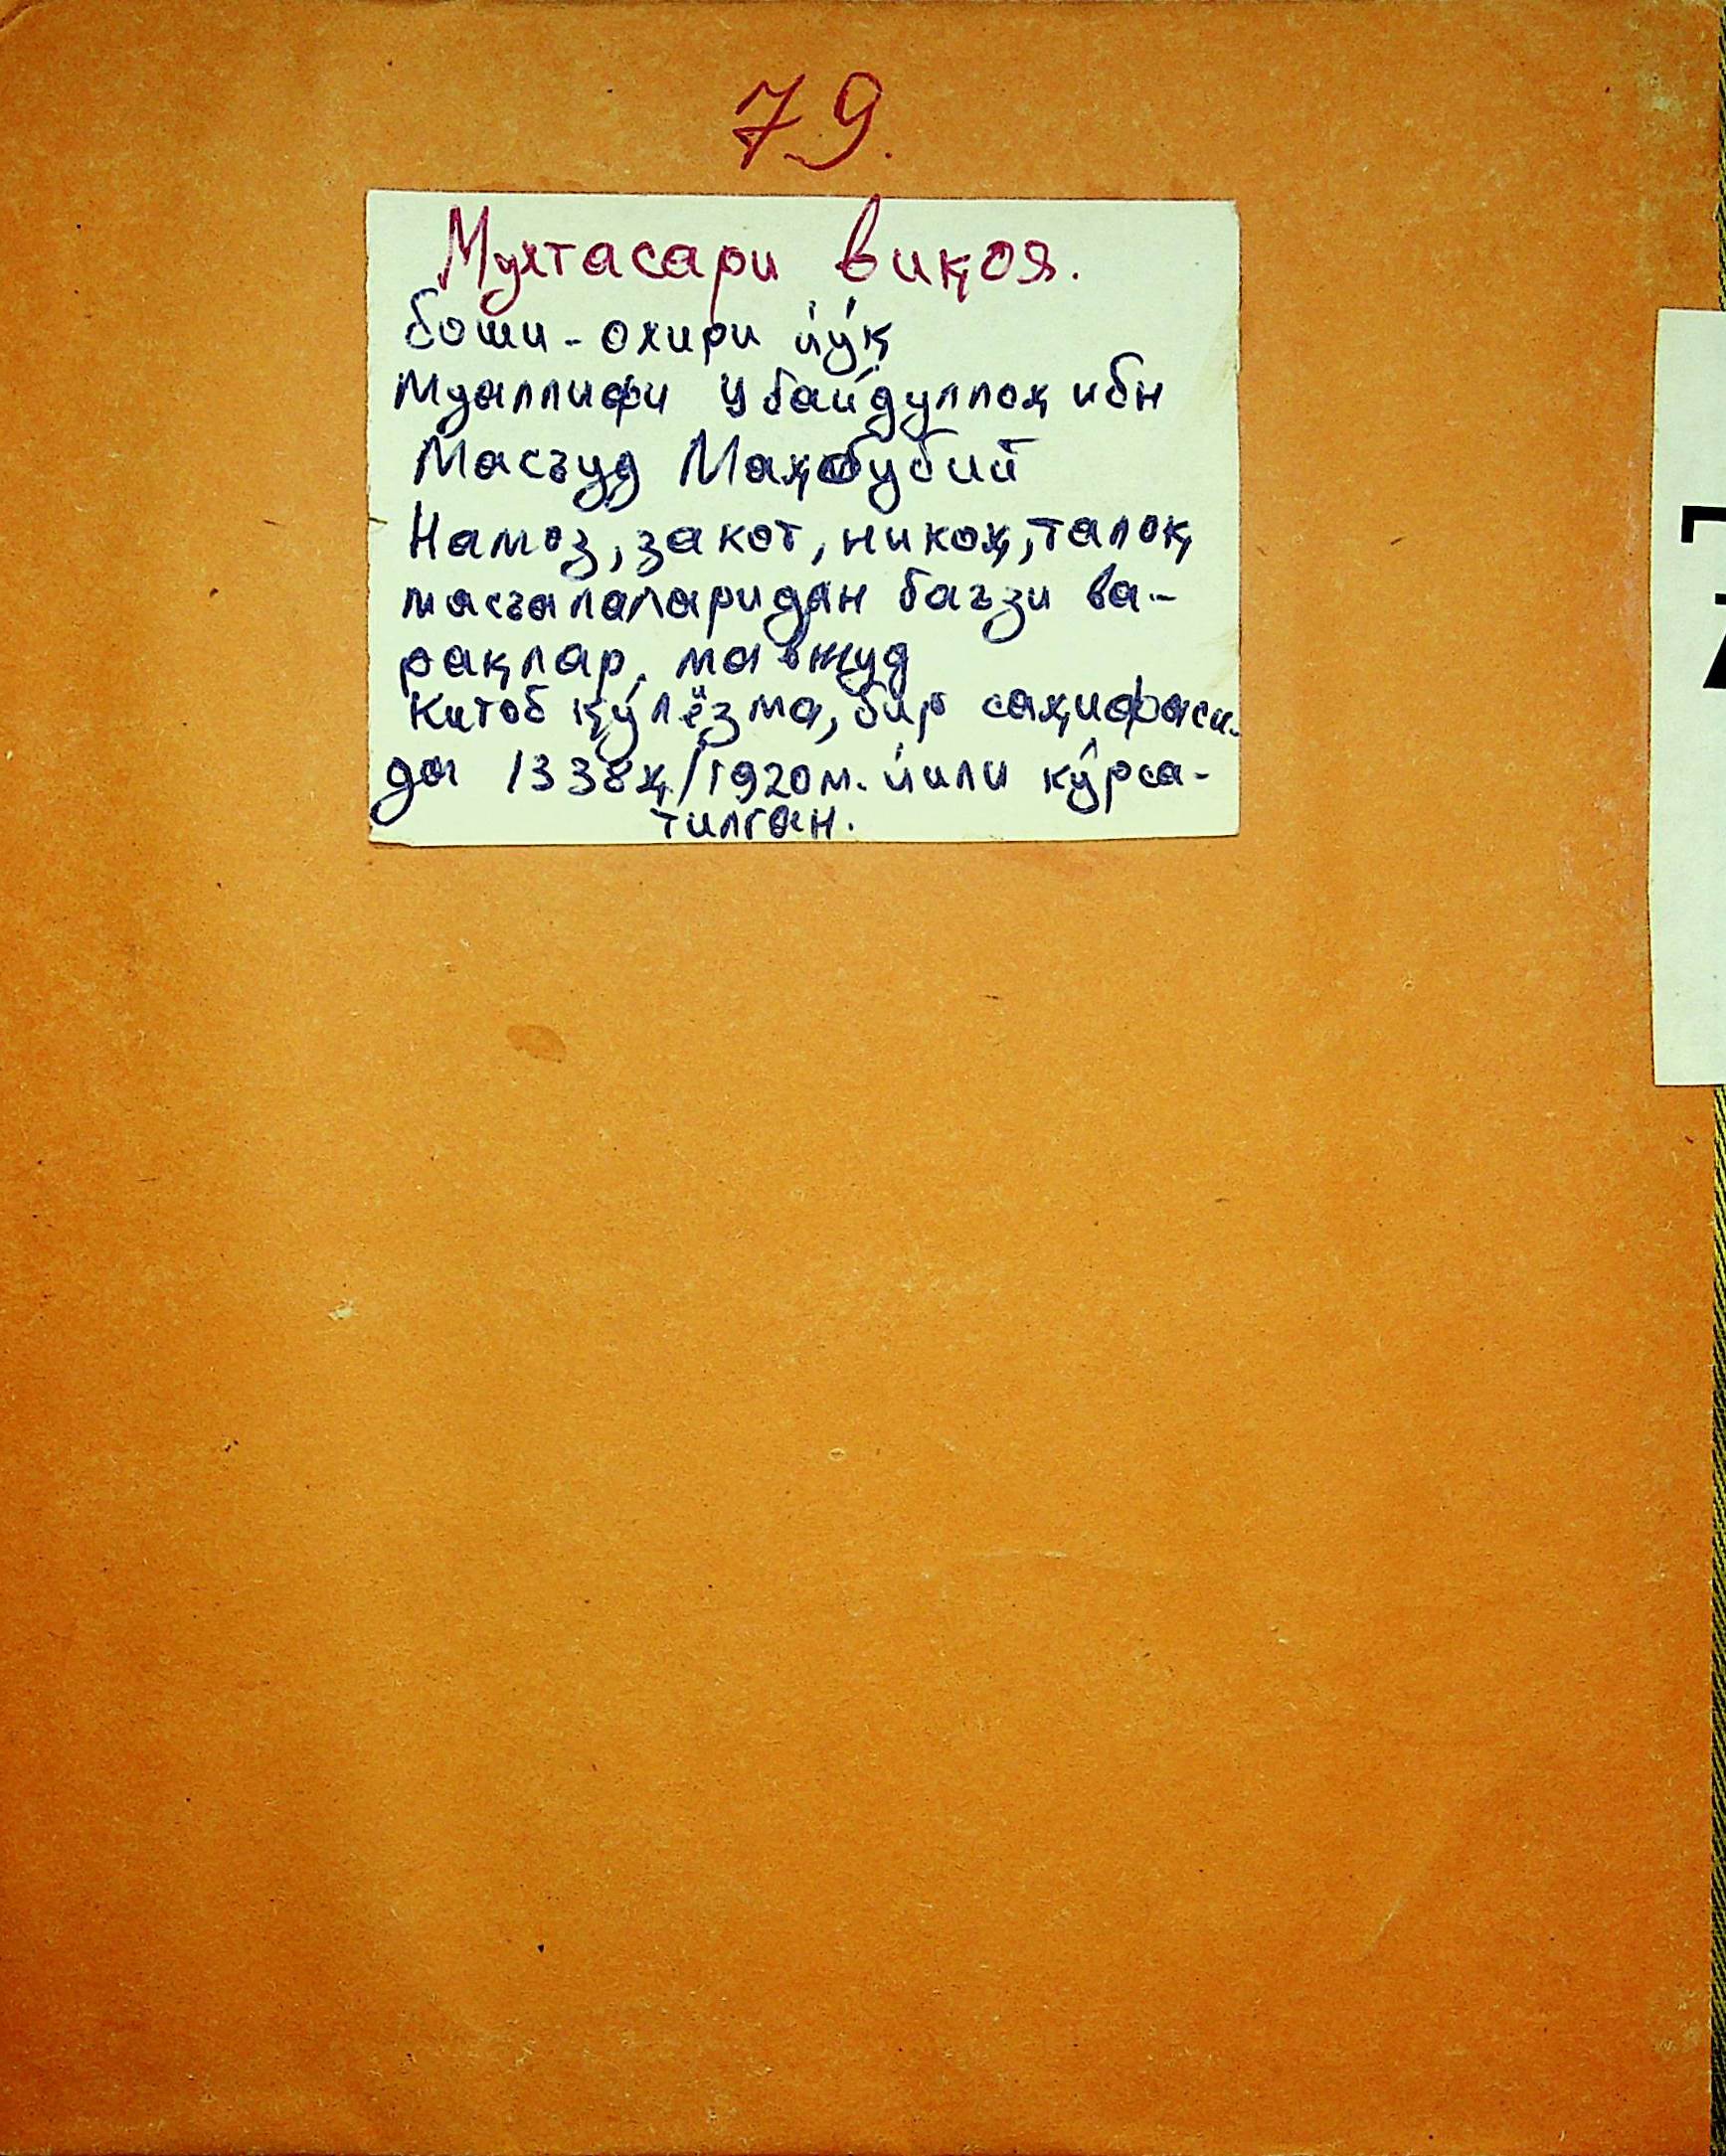 79.
Мухтасари виқоя.
боши-охири йўқ
Муаллифи Убайдуллоҳ ибн
Масъуд Маҳбубий
Намоз, закот, никоҳ, талоқ
масъалаларидан баъзи ва-
рақлар мавжуд
Китоб қўлёзма, бир саҳифаси-
да 1338ҳ/1920м. йили кўрса-
тилган.